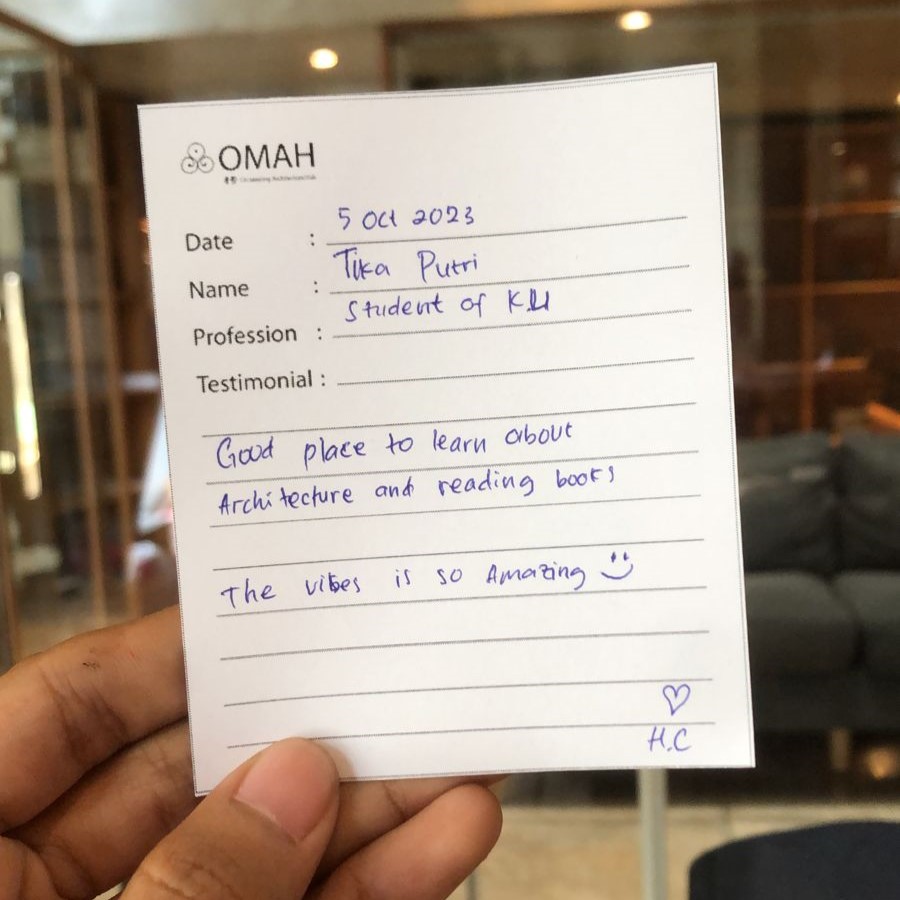 OMAH
Date : 5 Oct 2023
Name : Tika Putri
Profession : Student of KU
Testimonial :
Good place to learn about
Architecture and reading books
The vibes is so Amazing
H.C